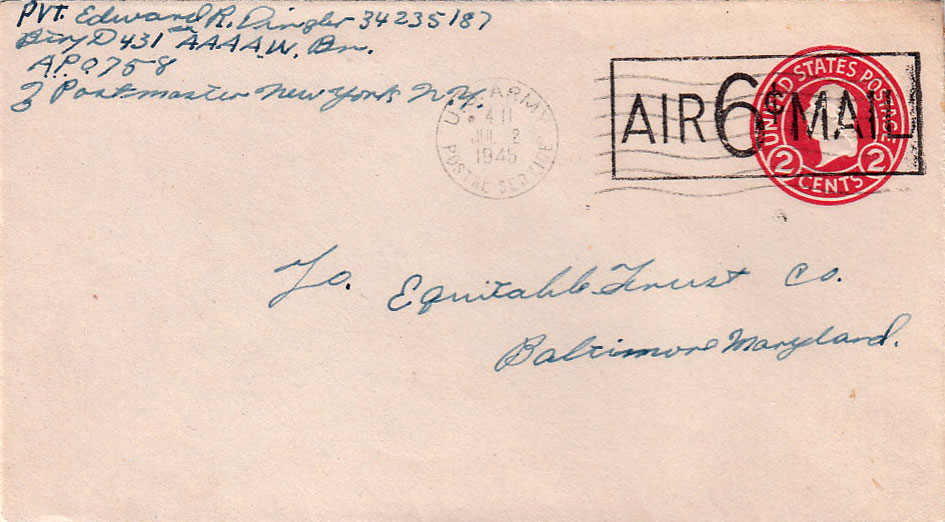 PVT. Edward R. Dingler 34235187
Btry D 431st AAAAW. Bn.
A.P.O 758
% Postmaster New York N.Y.
U.S. ARMY
4 11
JUL 2
1945
POSTAL SERVICE
AIR 6¢ MAIL
UNITED STATES POSTAGE
2 CENTS 2
To. Equitable Trust Co.
Baltimore Maryland.